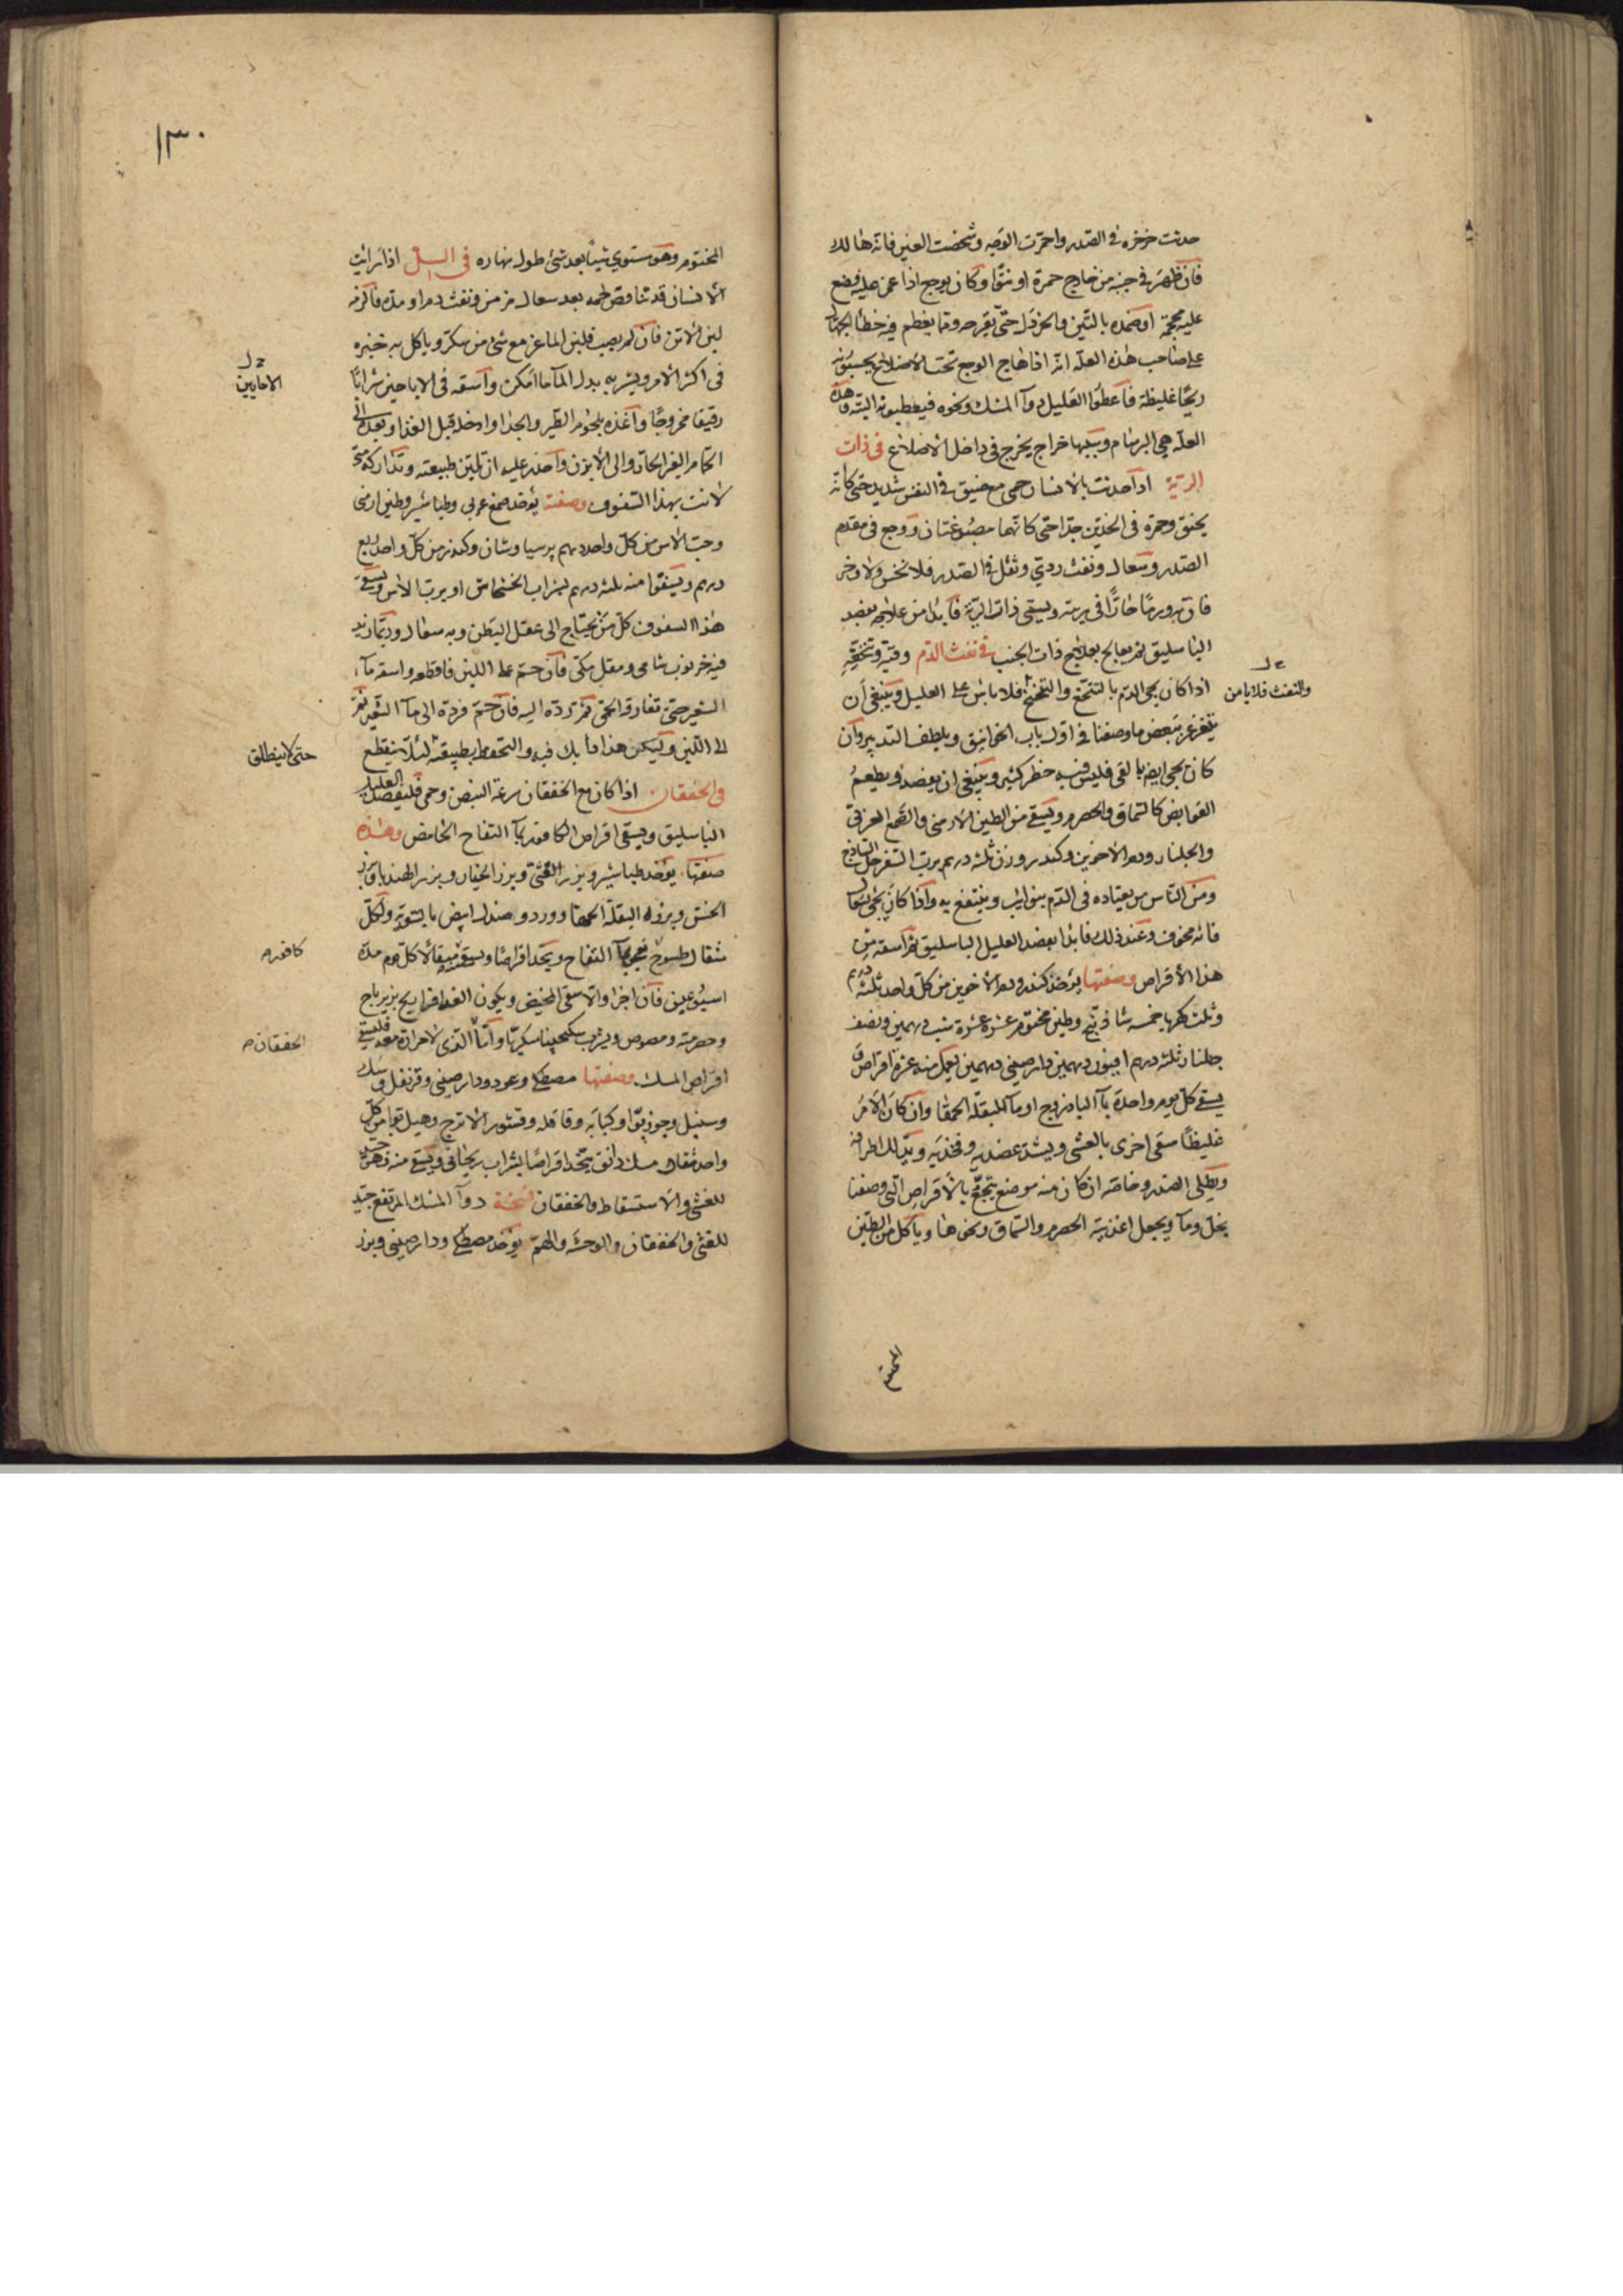 حدثت خرخرة في الصدر واحمرت الوجه وشخصت العين فانه هالك
فان ظهر في جنبه من خارج حمرة او نتوّا وكان يوجع اذا غمز عليه فضع
عليه محجمة او ضمده بالتين والخردل حتى يقرحه ومما يعظم فيه خطأ الجهال
على صاحب هذه العلة انه اذا هاج الوجع تحت الاضلاع يحسبونه
ريحًا غليظة فاعطوا العليل دوآ المسك ونحوه فيعطبونه البتة وهذه
العلة هي البرسام وسببها خراج يخرج في داخل الاضلاع في ذات
الرية اذا حدثت بالانسان حمى مع ضيق في النفس شديد حتى كانه
يختنق وحمرة في الخدين جدا حتى كانهما مصبوغتان ووجع في مقدم
الصدر وسعال ونفث ردي وثقل في الصدر فلا نخس ولا وخز
فان به ورمًا حارًّا في ريته ويسمى ذات الرية فابدا من علاجه بفصد
الباسليق ثم يعالج بعلاج ذات الجنب في نفث الدم وقيه وتنخعه
اذا كان يجي الدم بالتنحنح والتنخع فلا باس على العليل وينبغي ان
يتغرغر ببعض ما وصفنا في اول باب الخوانيق ويلطف التدبير وان
كان يجي ايضا بالقي فليس فيه خطر كثير وينبغي ان يفصد ويطعم
القوابض كالسماق والحصرم ويسقى من الطين الارمني والصمغ العربي
والجلنار ودم الاخوين وكندر وزن ثلثة درهم برب السفرجل الساذج
ومن الناس من يعتاده في الدم بنوايب وينتفع به واذا كان يجي بسعال
فانه مخوف وعند ذلك فابدا بفصد العليل الباسليق ثم اسقه من
هذا الاقراص وصفتها يؤخذ كندر ودم الاخوين من كل واحد ثلثة درهم
وثلث كهربا خمسة شاذنج وطين مختوم عشرة عشرة شب درهمين ونصف
جلنار ثلثة درهم افيون درهمين دارصيني درهمين يعمل منه عشرة اقراص
يسقى كل يوم واحدة بمآ الباذروج او مآ البقلة الحمقا وان كان الامر
غليظًا سقى اخرى بالعشي ويشد عضديه وفخذيه ويدلك اطرافه
ويطلى الصدر وخاصة ان كان منه موضع يتوجع بالاقراص التي وصفنا
بخل ومآ ويجعل اغذيته الحصرم والسماق ونحوها وياكل من الطين
ح ل
والنفث فلا باس
المختوم
١٣٠
المختوم وهو مستوي شيًا بعد شئ طول نهاره في السل اذا رايت
الانسان قد تناقص لحمه بعد سعال مزمن ونفث دم او مدة فالزمه
لبن الاتن فان لم يصب فلبن الماعز مع شئ من سكر وياكل به خبزه
في اكثر الامر ويشربه بدل المآ ما امكن واسقه في الاباحين شرابًا
رقيقا ممزوجًا واغذه بلحوم الطير والجدا وادخله قبل الغذا وبعده الى
الحمام الغير الحار والى الابزن واحذر عليه ان تلين طبيعته وتداركه متى
لانت بهذا السفوف وصفته يؤخذ صمغ عربي وطباشير وطين ارمني
وحب الاس من كل واحد درهم برسياوشان وكندر من كل واحد ربع
درهم ويستفوا منه ثلثة درهم بشراب الخشخاش او برب الاس ويسقى
هذا السفوف كل من يحتاج الى عقل البطن وبه سعال وربما زيد
فيه خرنوب شامي ومقل مكي فان حم على اللبن فاقطعه واسقه مآء
الشعير حتى تفارق الحمى ثم ترده اليه فان حم فرده الى مآ الشعير ثم
الى اللبن وليكن هذا دابك فيه والتحفظ بطبيعته لئلا ينقطع
في الخفقان اذا كان مع الخفقان سرعة النبض وحمى فليفصد العليل
الباسليق ويسقى اقراص الكافور بمآ التفاح الحامض وهذه
صفتها يؤخذ طباشير وبزر القثي وبزر الخيار وبزر الهندبا وبزر
الخس وبزر البقلة الحمقا وورد وصندل ابيض بالسوية ولكل
مثقال طسوج يعجن بمآ التفاح ويتخذ اقراصًا ويسقى مثقالا كل يوم مدة
اسبوعين فان اجزا والا سقي المخيض ويكون الغذا فراريج بزيرباج
وحصرمية ومصوص ويشرب سكنجبينا سكريا واما الذي لا حرارة معه فليسقى
اقراص المسك وصفتها مصطكا وعود ودارصيني وقرنفل وسك
وسنبل وجوز بوّا وكبابه وقاقله وقشور الاترج وهيل بوا من كل
واحد مثقال مسك دانق يتخذ اقراصًا بشراب ريحاني ويسقى منه
للغشي والاستسقاط والخفقان نسخة دوآ المسك المرتفع جيد
للغشي والخفقان والوحشة والهم يؤخذ مصطكا ودارصيني وبزر
ح ل
الاحايين
حتى لا ينطلق
كافور صح
الخفقان صح